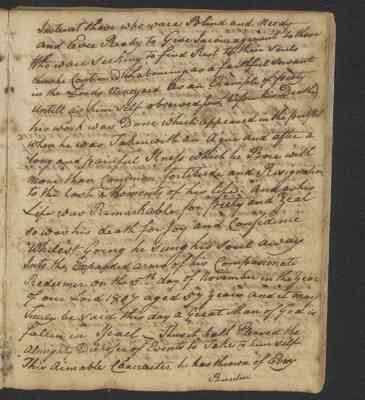 Instruct those who ware Blind and Needy
and Ever Ready to Give Incouragement to those
Who ware Seeking to find Rest to their Souls
he Continued Labouring as a faithful Servant
in the Lords Vineyard as an Example of Piety
Untill as him Self observed his
his work was Done which appeared in the
When he was Taken with an Ague and after a
Long and painful Ilness which he Bore with
more than Common fortitude and Resignation
to the Last Moments of his Life. And as his
Life was Remarkable for Piety and Zeal
so was his death for Joy and Confidence
Whilest Going he Sung his Soul away
Into the Expanded arms of his Compassionate
Redeemer on the 5th day of November in the Year
of our Lord 1807 aged 57 years and it may
Truly be Said this day a Great Man of God is
fallen in Israel — Thus it hath Pleased the
Almighty Disposer of Events to Take to him Self
This Aimable Character he has thrown of Every
Burden